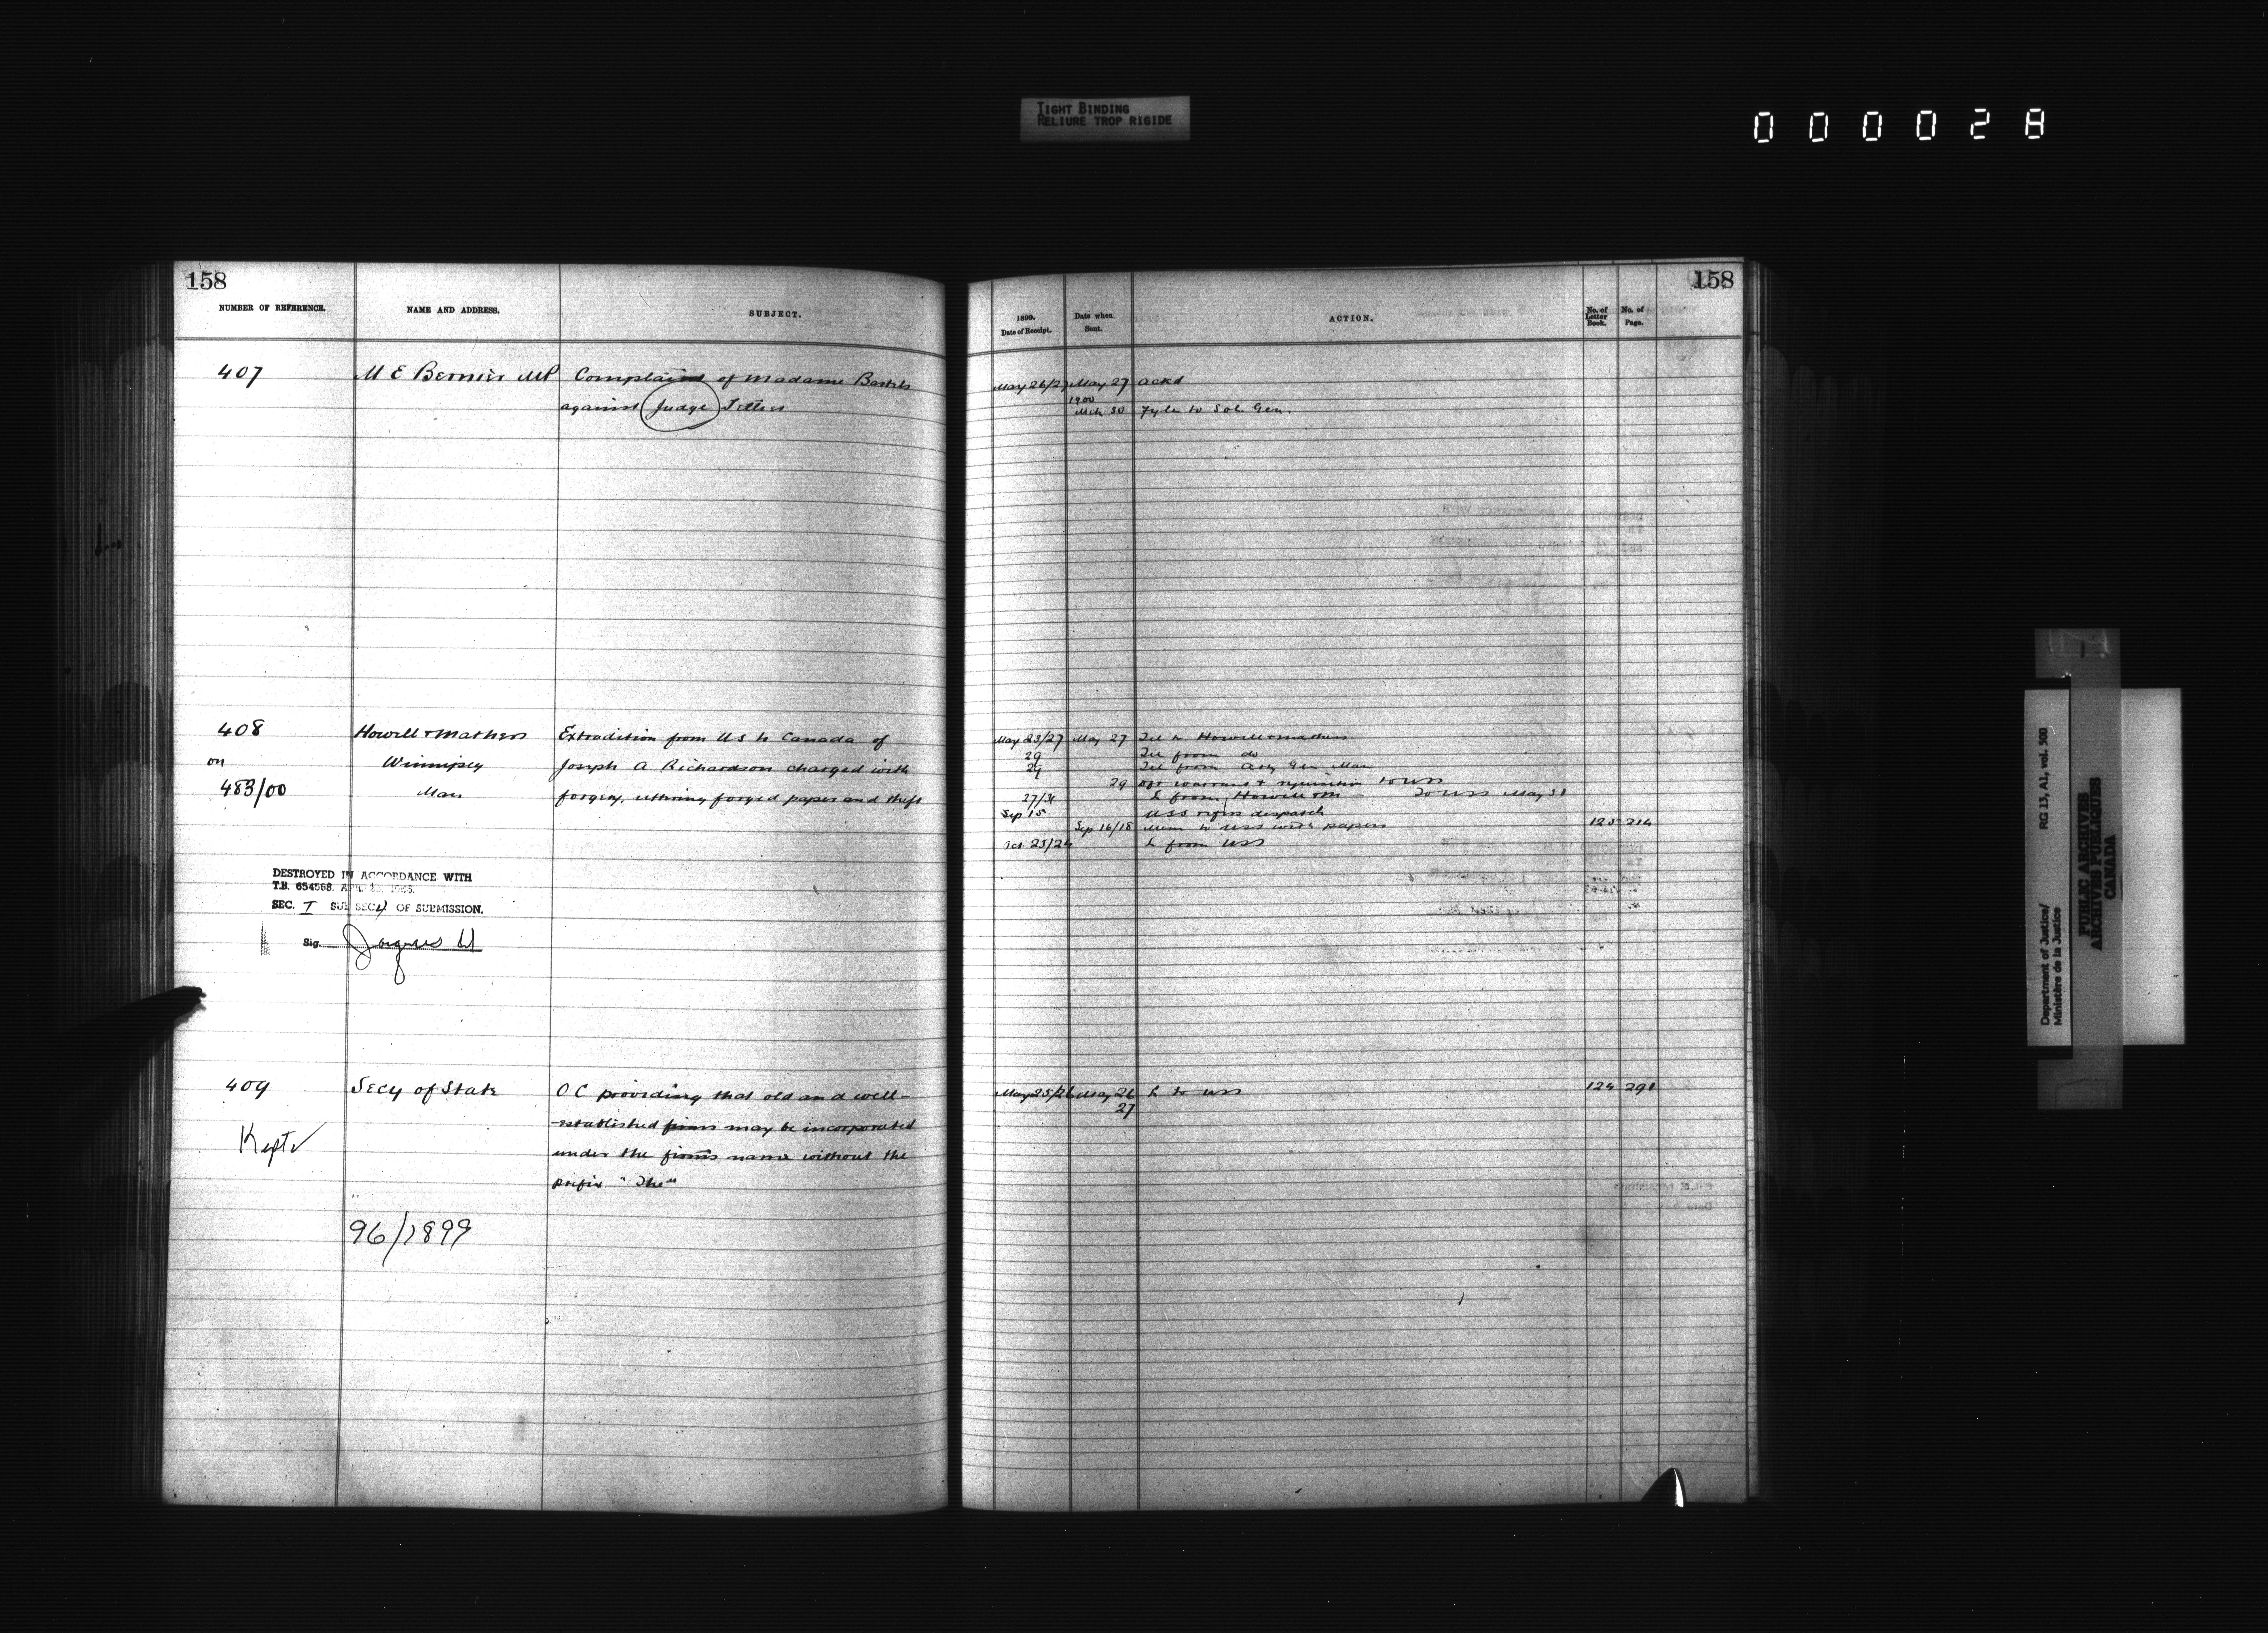 TIGHT BINDING
RELIURE TROP RIGIDE
000028
158
NUMBER OF REFERENCE.
NAME AND ADDRESS.
SUBJECT.
407
M E Bernier MP
Complaint of Madame
against Judge
408
Howell & Mathers
Extradition from US to Canada of
on
Winnipeg
Joseph A Richardson charged with
483/00
Man
forgery, uttering forged paper and theft
DESTROYED IN ACCORDANCE WITH
T.B. 654568,
SEC. I SUB SEC 4 OF SUBMISSION.
Sig.
409
Secy of State
O C providing that old and well-
-established firms may be incorporated
Kept
under the firms name without the
prefix "The"
96/1899
158
1899.
Date of Receipt.
Date when
Sent.
ACTION.
No. of
Letter
Book.
No. of
Page.
May 26/27 May 27 ackd
1900
Mch 30 Fyle to Sol. Gen.
May 23/27 May 27 Tel to Howell & Mathers
29 Tel from do
29 Tel from Atty Gen Man
29 warrant & requisition to USS
27/31 L from Howell & M — To USS May 31
Sep 15 USS refers despatch
Sep 16/18 Mem to USS with papers 125 214
Oct 23/24 L from USS
May 25/26 May 26 L to USS 124 291
27
Department of Justice/
Ministère de la Justice
RG 13, A1, vol. 500
PUBLIC ARCHIVES
ARCHIVES PUBLIQUES
CANADA